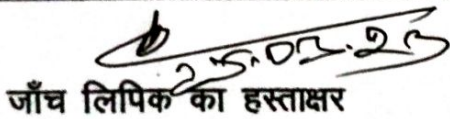 25.03.23
जाँच लिपिक का हस्ताक्षर